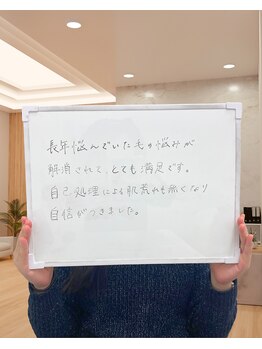 長年悩んでいた毛の悩みが
解消されて、とても満足です。
自己処理による肌荒れも無くなり
自信がつきました。